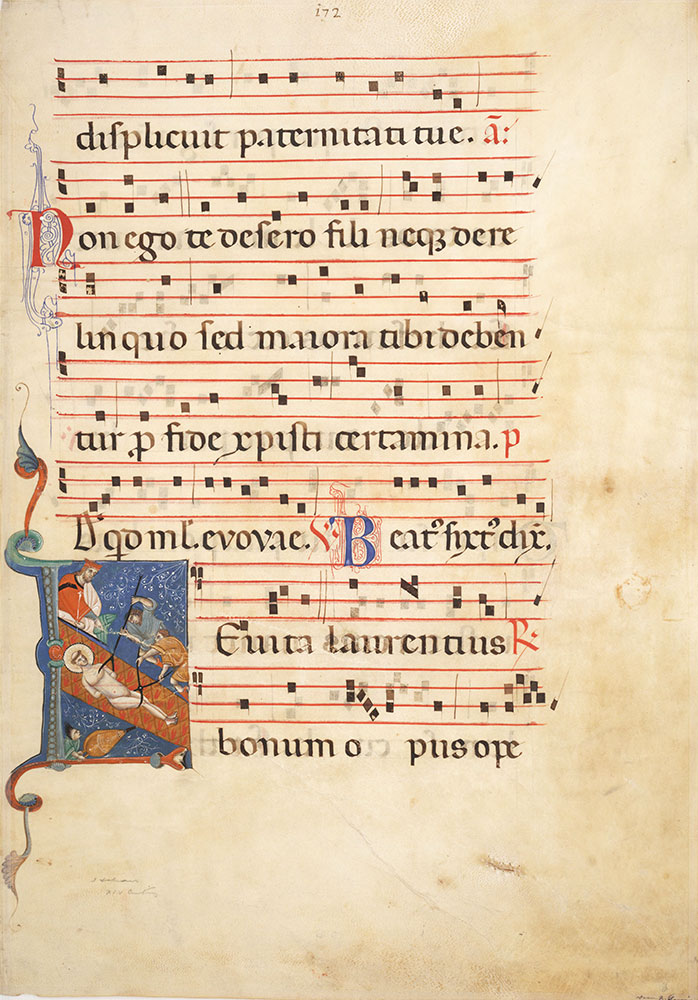 172
displicuit paternitati tue. ā:
Non ego te desero fili neqʒ dere
linquo sed maiora tibi debēn
tur ꝓ fide xpisti certamina. p
euouae. ℣ Beatꝰ sixtꝰ dix.
Leuita laurentius ℟.
bonum opus ope